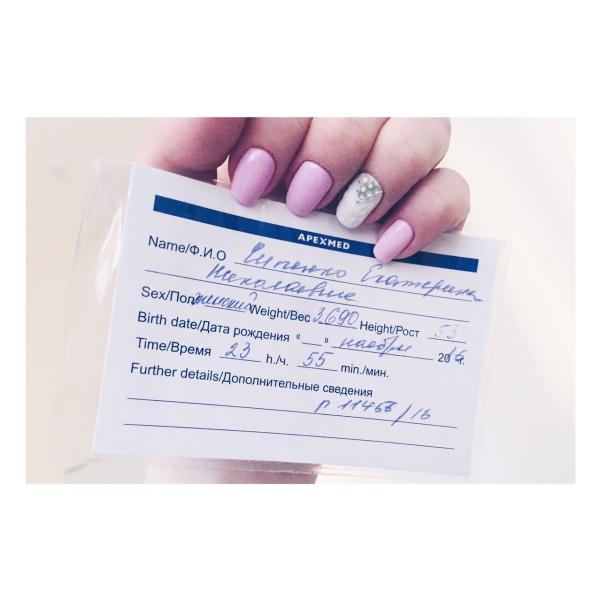 APEXMED
Name/Ф.И.О Екатерина
Николаевна
Sex/Пол женский Weight/Вес 3.690 Height/Рост 53
Birth date/Дата рождения « » ноября 2016 г.
Time/Время 23 h./ч. 55 min./мин.
Further details/Дополнительные сведения
р 11453/16